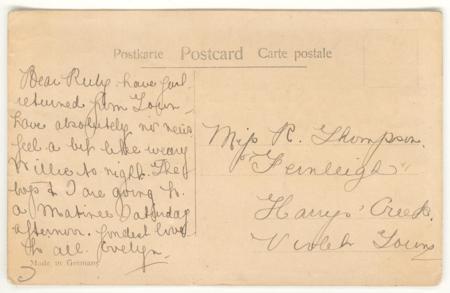 Postkarte Postcard Carte postale
Dear Ruby. have just
returned from Town -
have absolutely no news
feel a bit like weary
Willie to-night. The
boys & I are going to
a Matinee Saturday
afternoon. fondest love
to all. Evelyn.
Made in Germany
Miss R. Thompson.
"Fernleigh"
Harrys' Creek.
Violet Town